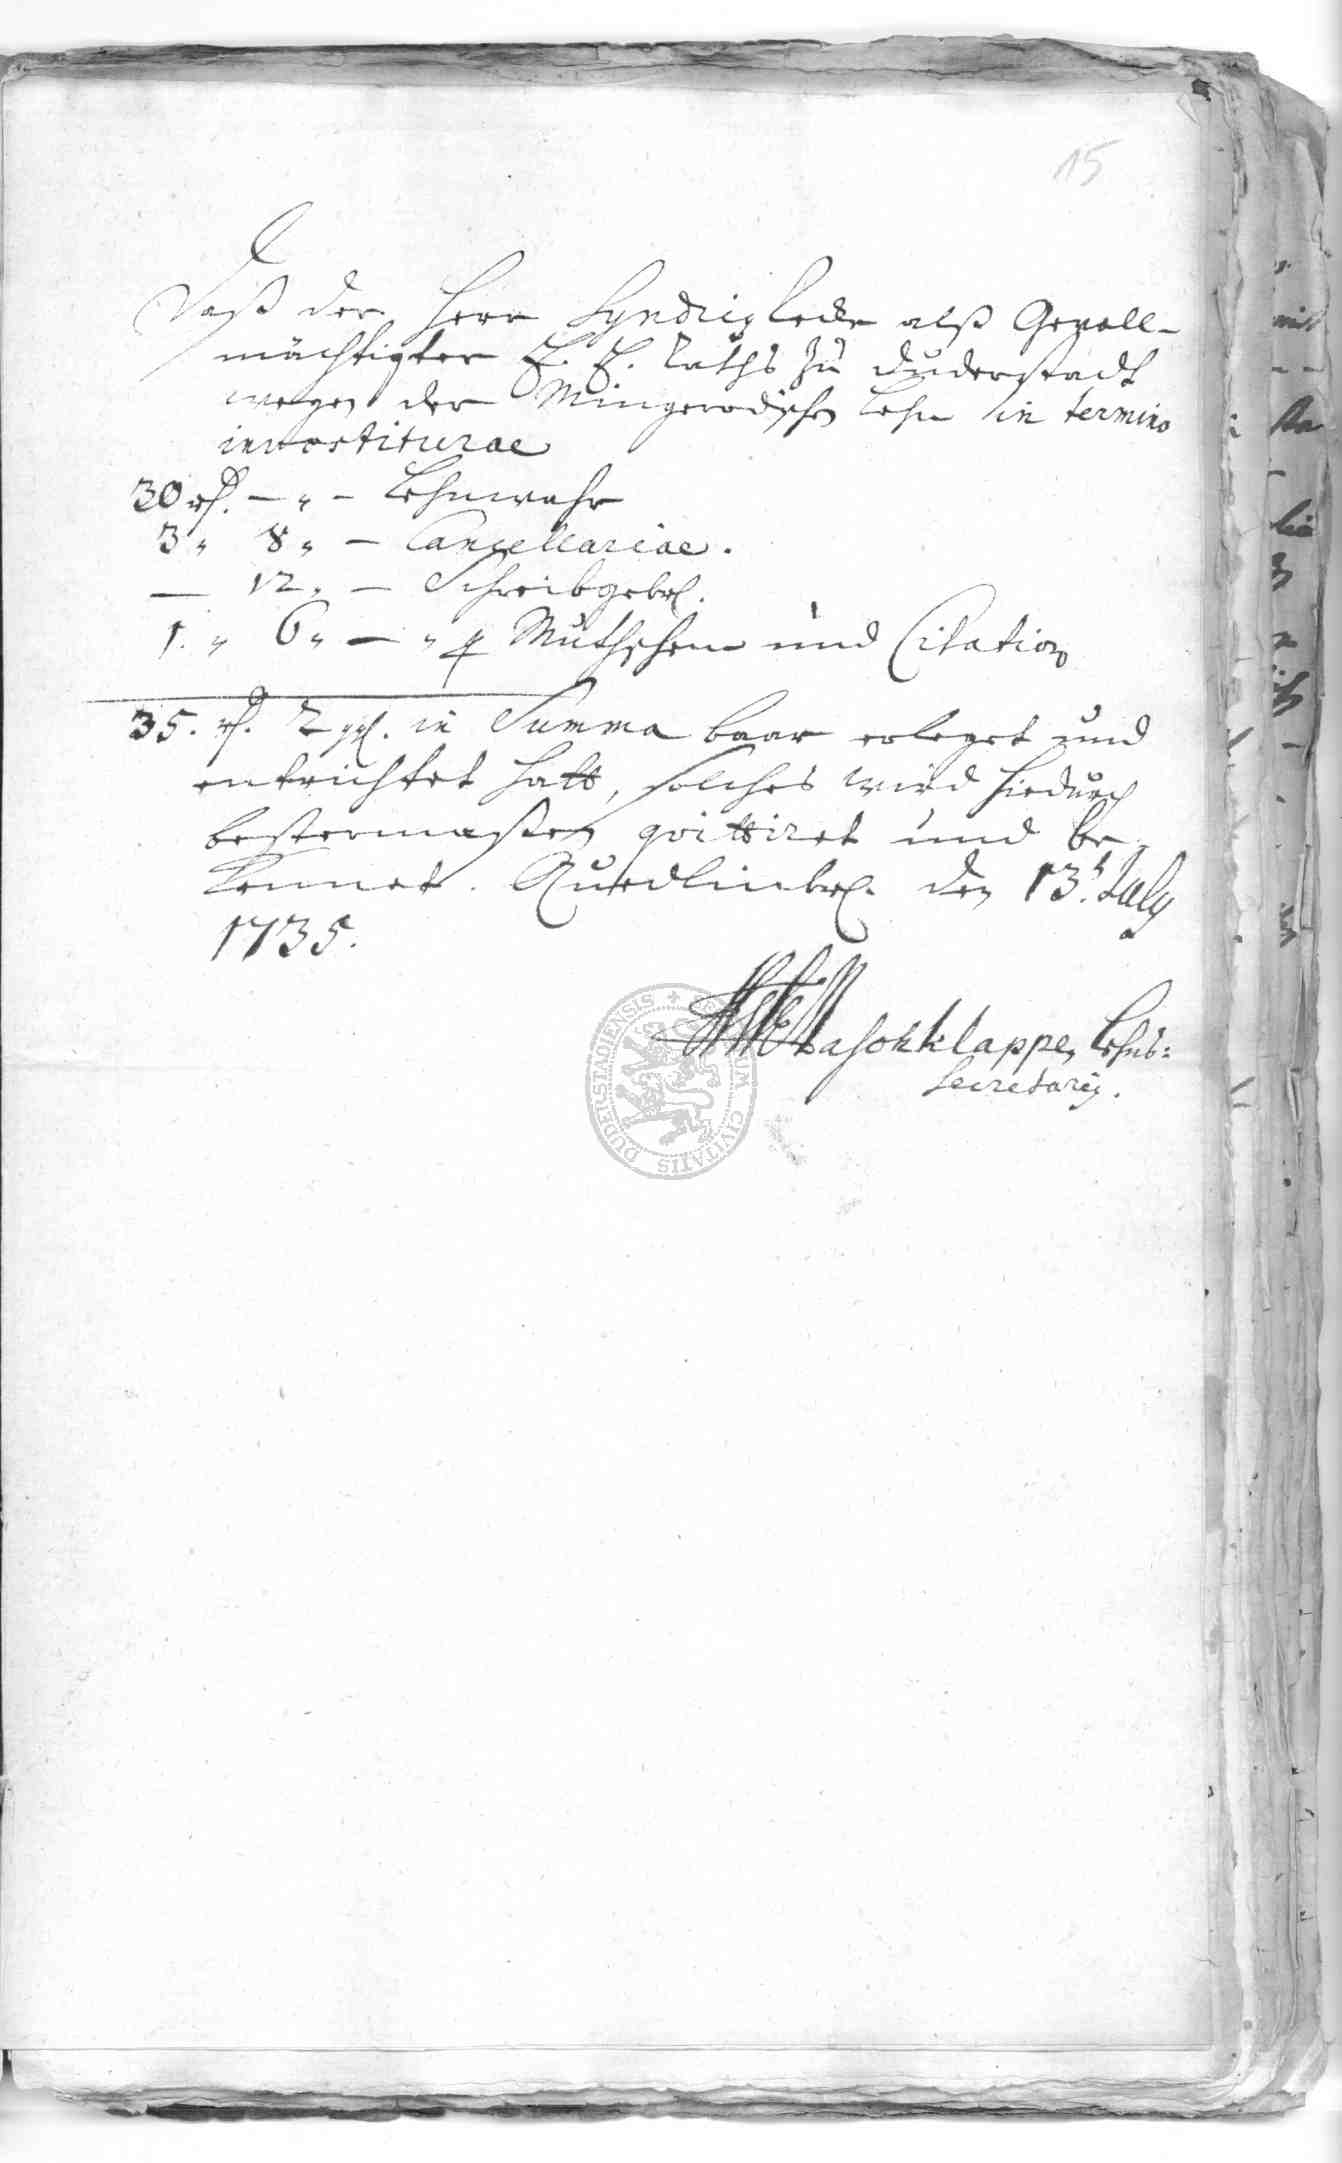 15
Daß der Herr Syndicus Lede alß Gevoll-
mächtigter E. E. Raths zu Duderstadt
wegen der Mingerodischen Lehn in termino
investiturae
30 rth. — " — Lehnwahr
3 " 8 " — Cancellariae.
— 12 " — Schreibgebhr.
1. " 6 " — " Muthschein und Citation
35. rth. 2 ggl. in Summa baar erleget und
entrichtet hatt, solches wird hiedurch
bestermaßen qvittiret und be-
kennet. Quedlinb. den 13t. July
1735.
Hasohklappe, Lehns-
Secretarius.
SIGILLUM CIVITATIS DUDERSTADIENSIS